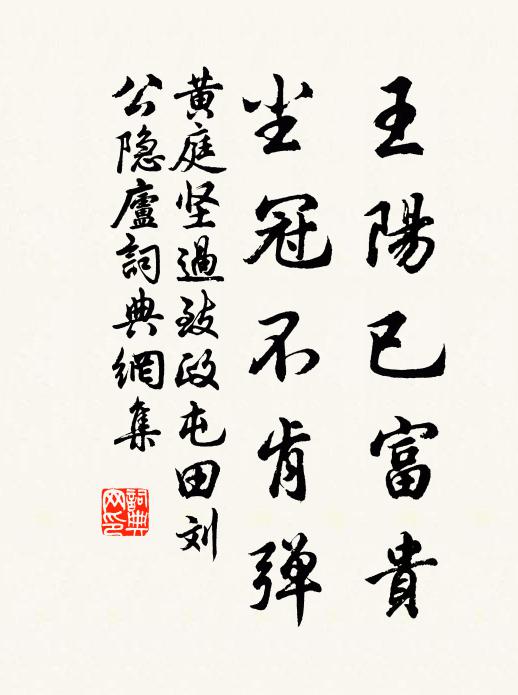 王陽已富貴
尘冠不肯弹
黄庭坚過致政屯田刘
公隐廬詞典網集
詞典网印